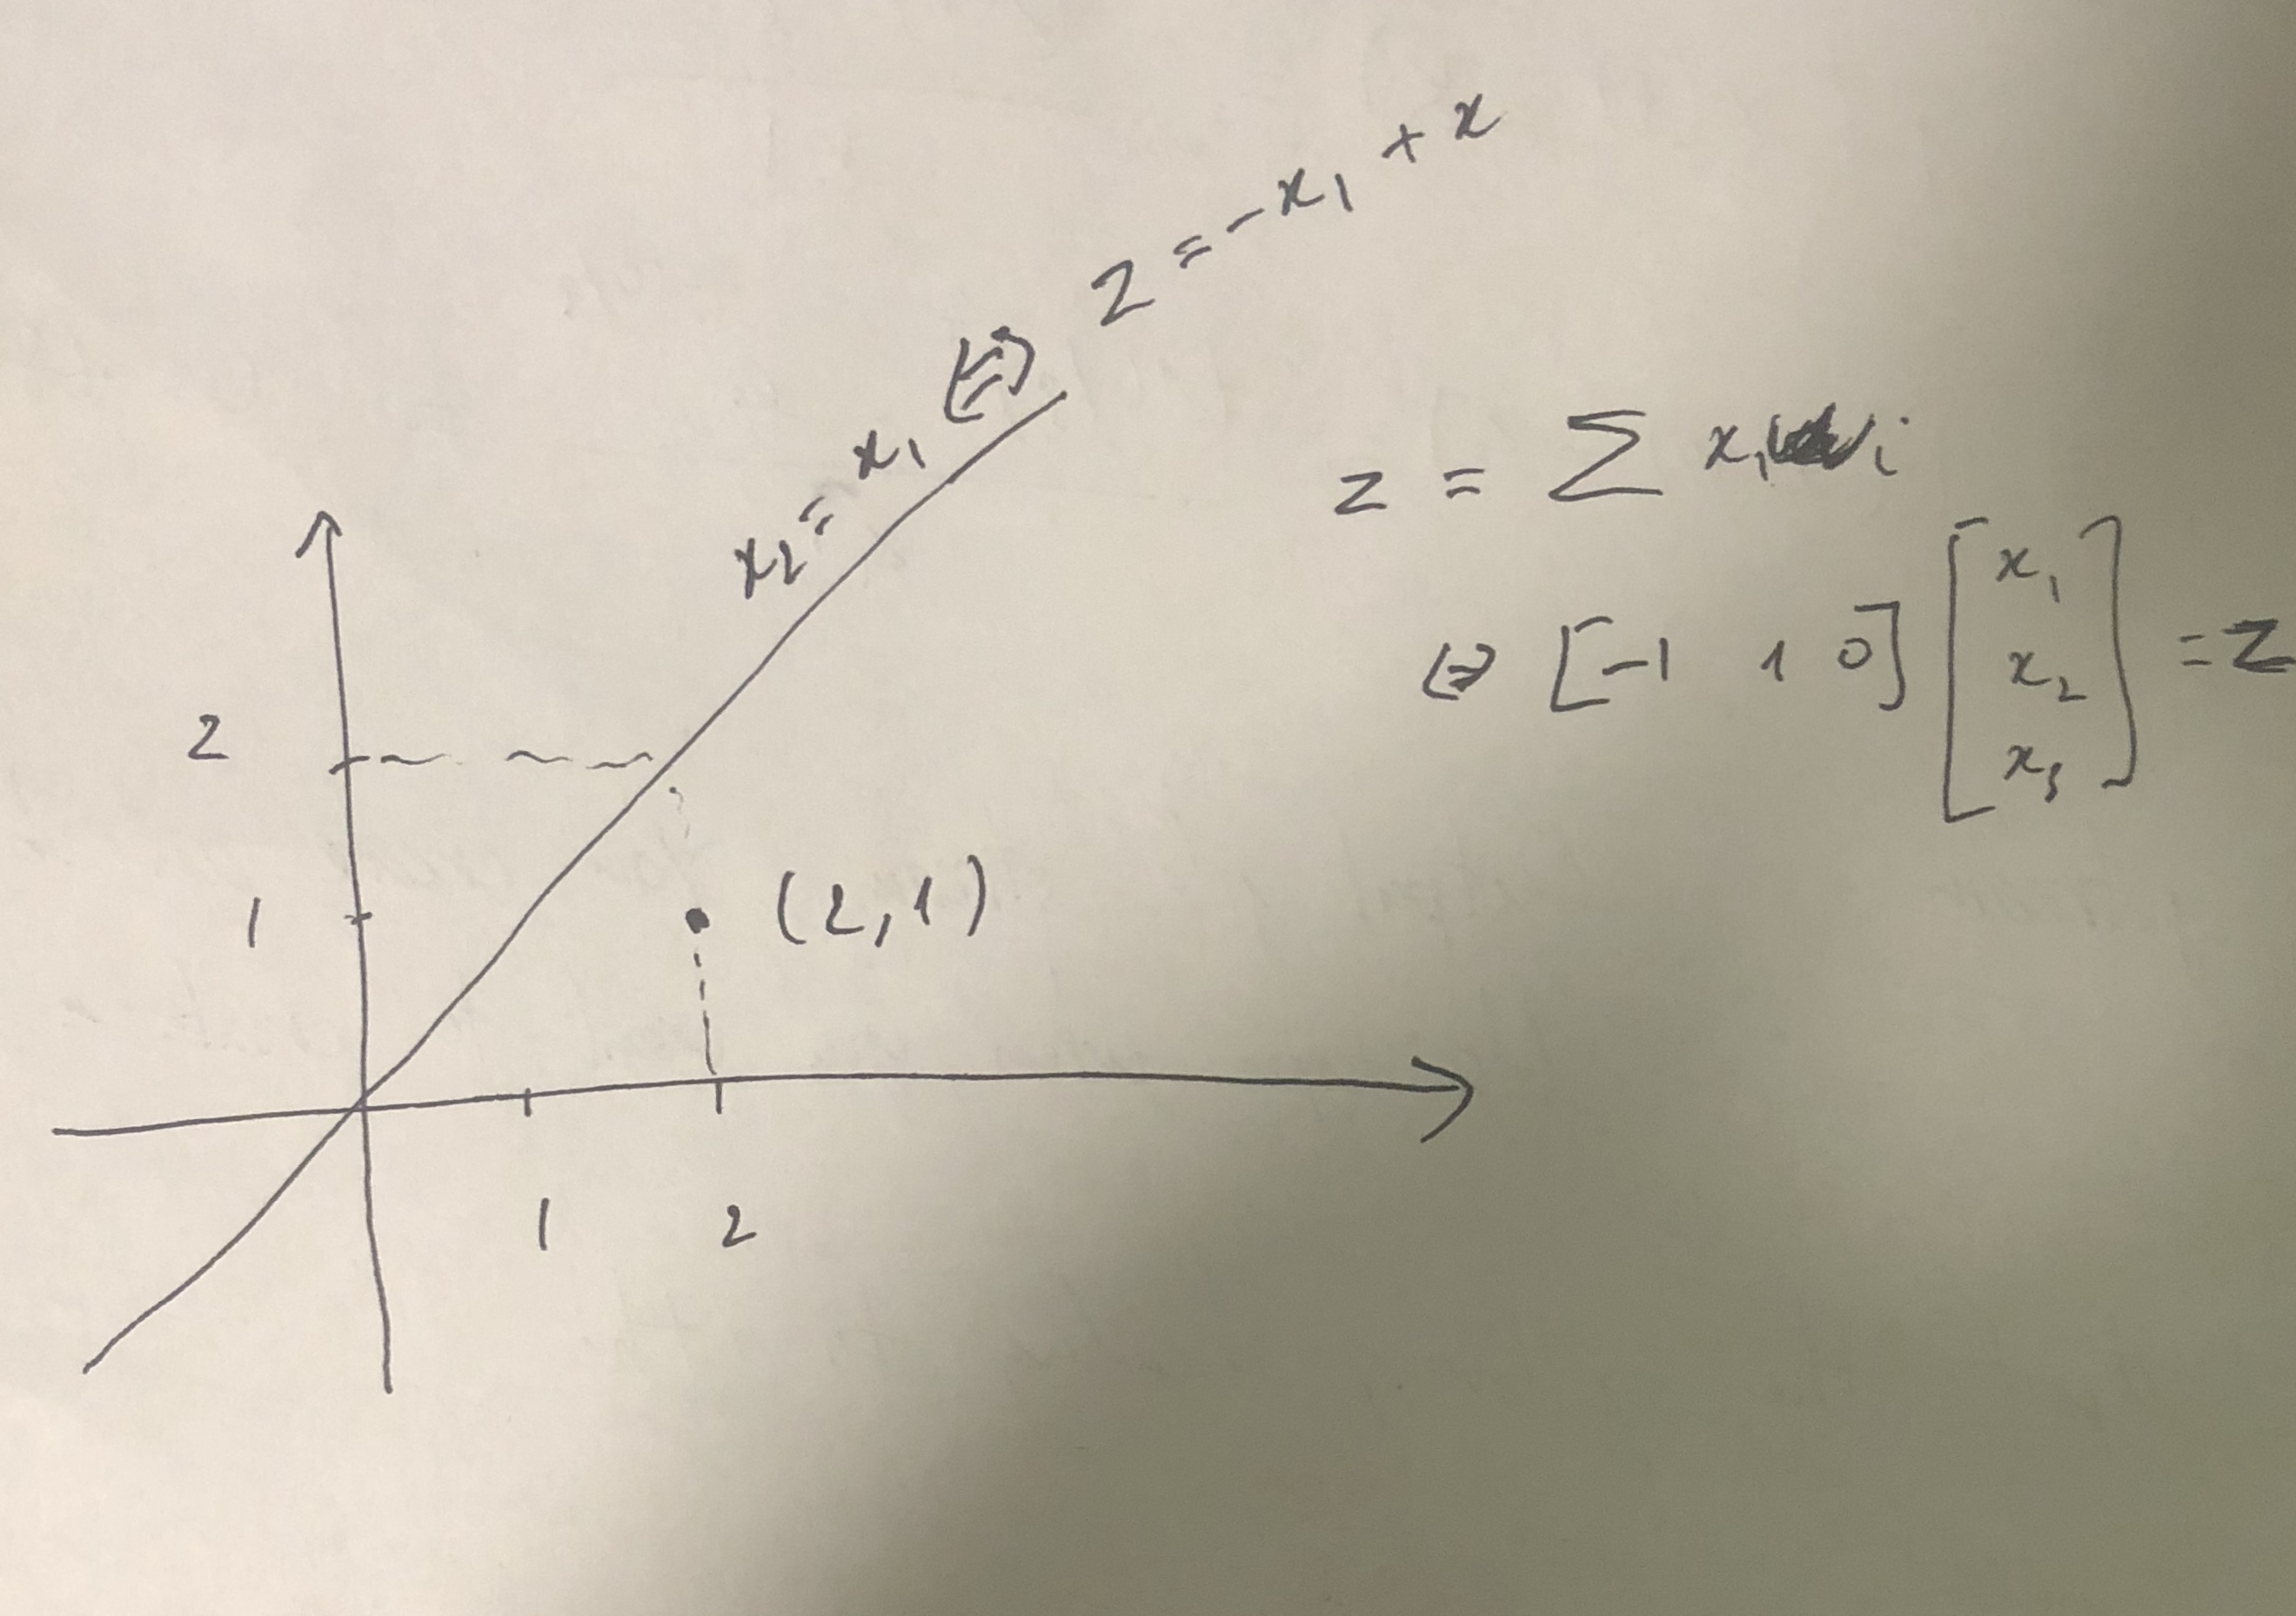 x₂ = x₁ ⇔ z = -x₁ + x
z = Σ xᵢwᵢ
⇔ [-1 1 0] [x₁ x₂ x₃] = z
2
1
(2,1)
1 2